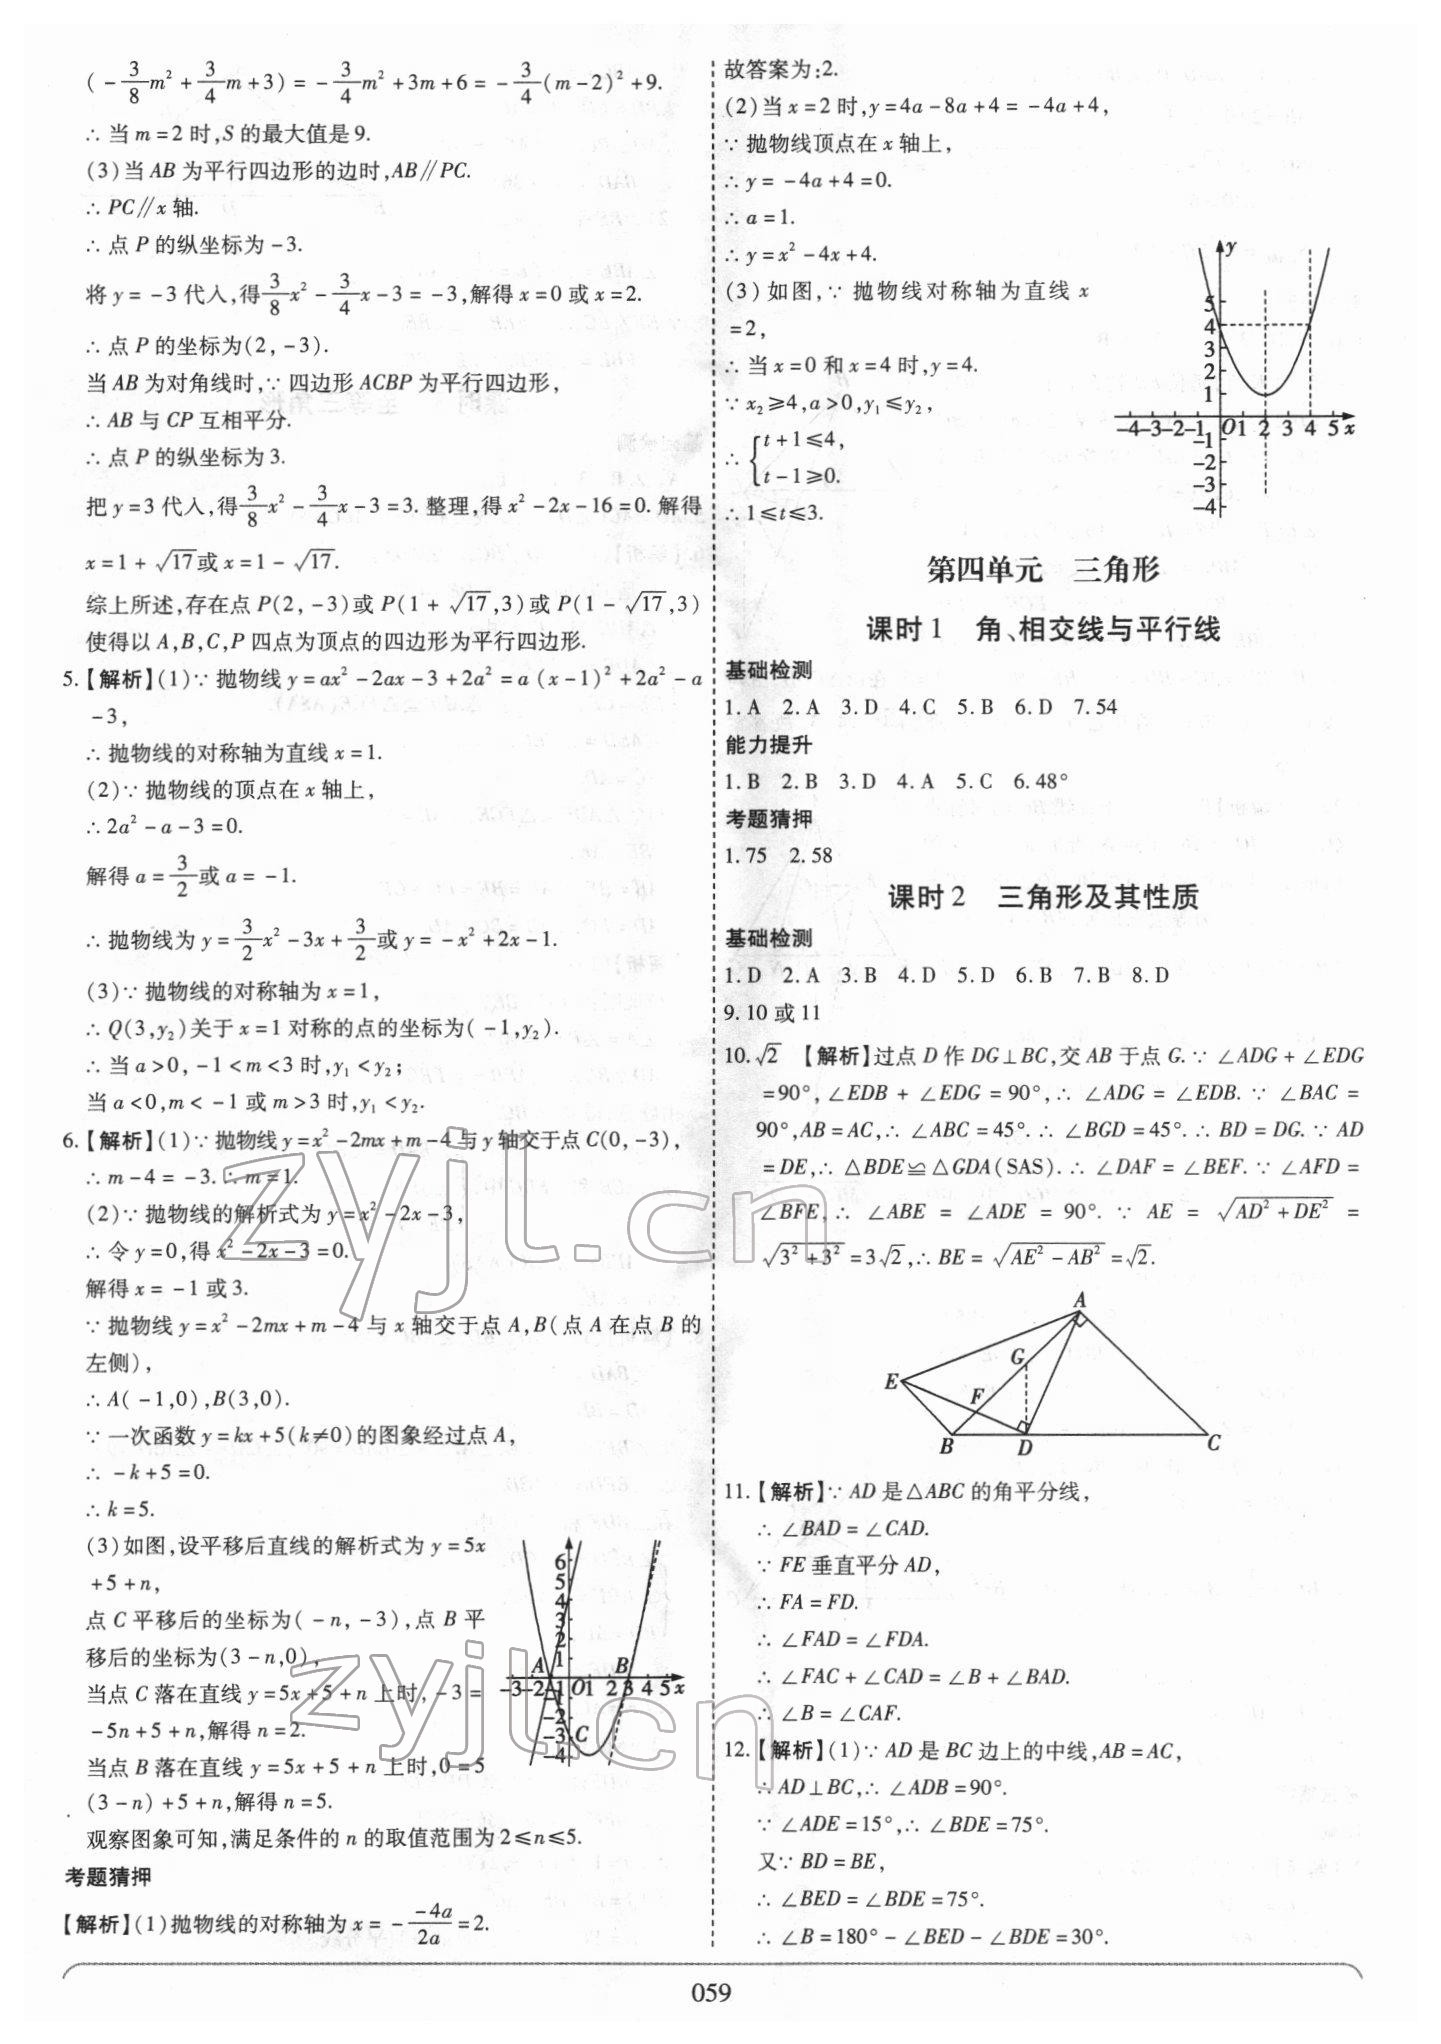 (-3/8m²+3/4m+3)=-3/4m²+3m+6=-3/4(m-2)²+9.
∴当m=2时,S的最大值是9.
(3)当AB为平行四边形的边时,AB∥PC.
∴PC∥x轴.
∴点P的纵坐标为-3.
将y=-3代入,得3/8x²-3/4x-3=-3,解得x=0或x=2.
∴点P的坐标为(2,-3).
当AB为对角线时,∵四边形ACBP为平行四边形,
∴AB与CP互相平分.
∴点P的纵坐标为3.
把y=3代入,得3/8x²-3/4x-3=3.整理,得x²-2x-16=0.解得
x=1+√17或x=1-√17.
综上所述,存在点P(2,-3)或P(1+√17,3)或P(1-√17,3)
使得以A,B,C,P四点为顶点的四边形为平行四边形.
5.【解析】(1)∵抛物线y=ax²-2ax-3+2a²=a(x-1)²+2a²-a
-3,
∴抛物线的对称轴为直线x=1.
(2)∵抛物线的顶点在x轴上,
∴2a²-a-3=0.
解得a=3/2或a=-1.
∴抛物线为y=3/2x²-3x+3/2或y=-x²+2x-1.
(3)∵抛物线的对称轴为x=1,
∴Q(3,y₂)关于x=1对称的点的坐标为(-1,y₂).
∴当a>0,-1<m<3时,y₁<y₂;
当a<0,m<-1或m>3时,y₁<y₂.
6.【解析】(1)∵抛物线y=x²-2mx+m-4与y轴交于点C(0,-3),
∴m-4=-3.∴m=1.
(2)∵抛物线的解析式为y=x²-2x-3,
∴令y=0,得x²-2x-3=0.
解得x=-1或3.
∵抛物线y=x²-2mx+m-4与x轴交于点A,B(点A在点B的
左侧),
∴A(-1,0),B(3,0).
∵一次函数y=kx+5(k≠0)的图象经过点A,
∴-k+5=0.
∴k=5.
(3)如图,设平移后直线的解析式为y=5x
+5+n,
点C平移后的坐标为(-n,-3),点B平
移后的坐标为(3-n,0),
当点C落在直线y=5x+5+n上时,-3=
-5n+5+n,解得n=2.
当点B落在直线y=5x+5+n上时,0=5
(3-n)+5+n,解得n=5.
观察图象可知,满足条件的n的取值范围为2≤n≤5.
6
5
4
3
2
1
A B
-3-2-1 O1 2 3 4 5 x
-2
-3 C
-4
考题猜押
【解析】(1)抛物线的对称轴为x=-(-4a)/2a=2.
故答案为:2.
(2)当x=2时,y=4a-8a+4=-4a+4,
∵抛物线顶点在x轴上,
∴y=-4a+4=0.
∴a=1.
∴y=x²-4x+4.
(3)如图,∵抛物线对称轴为直线x
=2,
∴当x=0和x=4时,y=4.
∵x₂≥4,a>0,y₁≤y₂,
∴{t+1≤4,
t-1≥0.
∴1≤t≤3.
y
5
4
3
2
1
-4-3-2-1 O1 2 3 4 5 x
-1
-2
-3
-4
第四单元 三角形
课时1 角、相交线与平行线
基础检测
1.A 2.A 3.D 4.C 5.B 6.D 7.54
能力提升
1.B 2.B 3.D 4.A 5.C 6.48°
考题猜押
1.75 2.58
课时2 三角形及其性质
基础检测
1.D 2.A 3.B 4.D 5.D 6.B 7.B 8.D
9.10或11
10.√2 【解析】过点D作DG⊥BC,交AB于点G.∵∠ADG+∠EDG
=90°,∠EDB+∠EDG=90°,∴∠ADG=∠EDB.∵∠BAC=
90°,AB=AC,∴∠ABC=45°.∴∠BGD=45°.∴BD=DG.∵AD
=DE,∴△BDE≌△GDA(SAS).∴∠DAF=∠BEF.∵∠AFD=
∠BFE,∴∠ABE=∠ADE=90°.∵AE=√(AD²+DE²)=
√(3²+3²)=3√2,∴BE=√(AE²-AB²)=√2.
A
G
E
F
B D C
11.【解析】∵AD是△ABC的角平分线,
∴∠BAD=∠CAD.
∵FE垂直平分AD,
∴FA=FD.
∴∠FAD=∠FDA.
∴∠FAC+∠CAD=∠B+∠BAD.
∴∠B=∠CAF.
12.【解析】(1)∵AD是BC边上的中线,AB=AC,
∴AD⊥BC,∴∠ADB=90°.
∵∠ADE=15°,∴∠BDE=75°.
又∵BD=BE,
∴∠BED=∠BDE=75°.
∴∠B=180°-∠BED-∠BDE=30°.
059
zyjl.cn
zyjl.cn